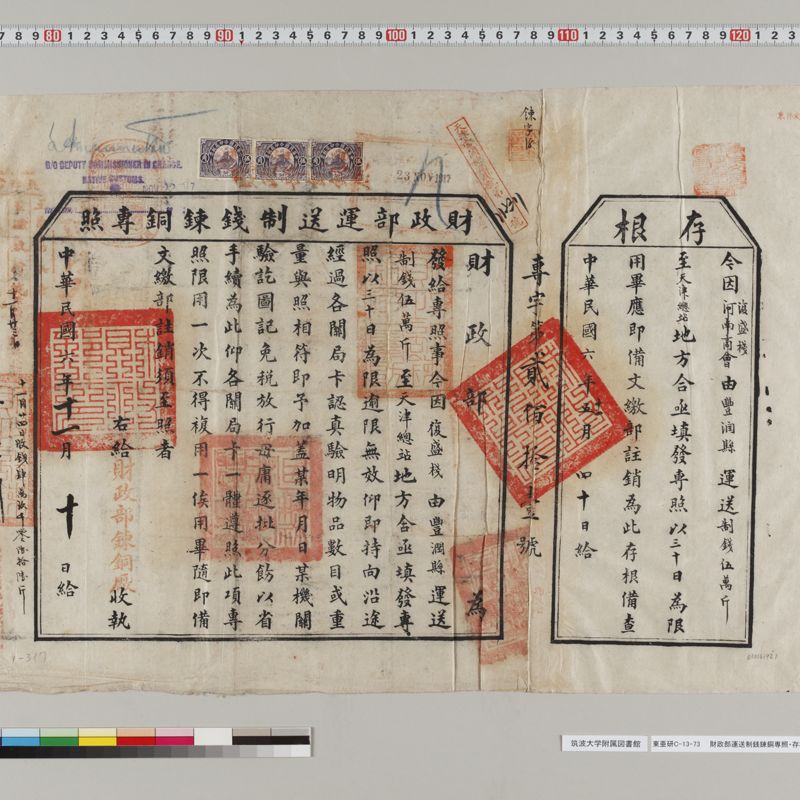 存根
令因復盛棧河南商會由豐潤縣運送制錢伍萬斤
至天津總站地方合亟填發專照以三十日為限
用畢應即備文繳部註銷為此存根備查
中華民國六年十一月十日給
專字第貳佰拾壹號
財政部運送制錢鍊銅專照
財政部為
發給專照事今因復盛棧由豐潤縣運送
制錢伍萬斤至天津總站地方合亟填發專
照以三十日為限逾限無效仰即持向沿途
經過各關局卡認真驗明物品數目或重
量與照相符即予加蓋某年月日某機關
驗訖圖記免稅放行毋庸逐批分飭以省
手續為此仰各關局卡一體遵照此項專
照限用一次不得複用一俟用畢隨即備
文繳部註銷須至照者
右給財政部鍊銅廠收執
中華民國六年十一月十日給
D/O DEPUTY COMMISSIONER IN CHARGE.
NATIVE CUSTOMS.
23 NOV 1917
1-317
筑波大学附属図書館
東亜研C-13-73 財政部運送制銭錬銅専照・存